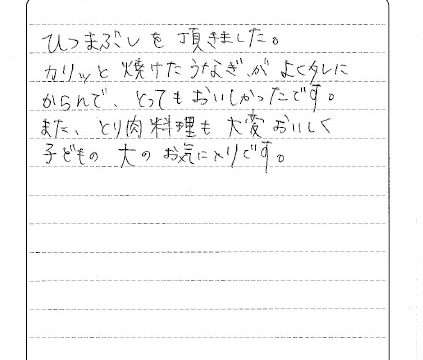 ひつまぶしを頂きました。
カリッと焼けたうなぎがよくタレに
からんで、とってもおいしかったです。
また、とり肉料理も大変おいしく
子どもの大のお気に入りです。